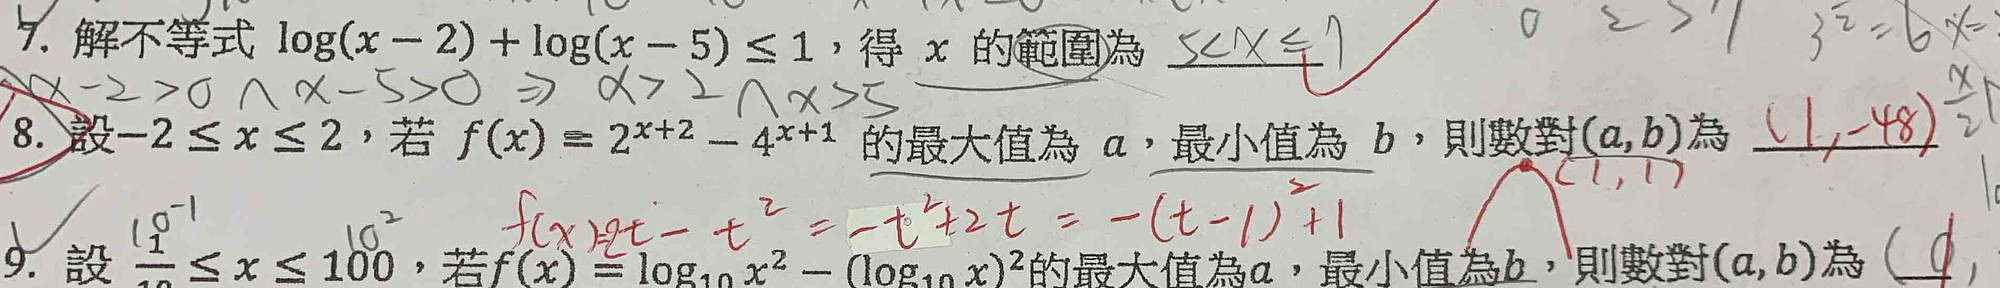 7. 解不等式 log(x − 2) + log(x − 5) ≤ 1，得 x 的範圍為 5<x≤7
x-2>0 ∧ x-5>0 ⇒ x>2 ∧ x>5
8. 設−2 ≤ x ≤ 2，若 f(x) = 2^{x+2} − 4^{x+1} 的最大值為 a，最小值為 b，則數對(a, b)為 (1,-48)
(1,1)
f(x)=2t-t² = -t²+2t = -(t-1)²+1
10^{-1} 10²
9. 設 1/10 ≤ x ≤ 100，若f(x) = log₁₀ x² − (log₁₀ x)²的最大值為a，最小值為b，則數對(a, b)為